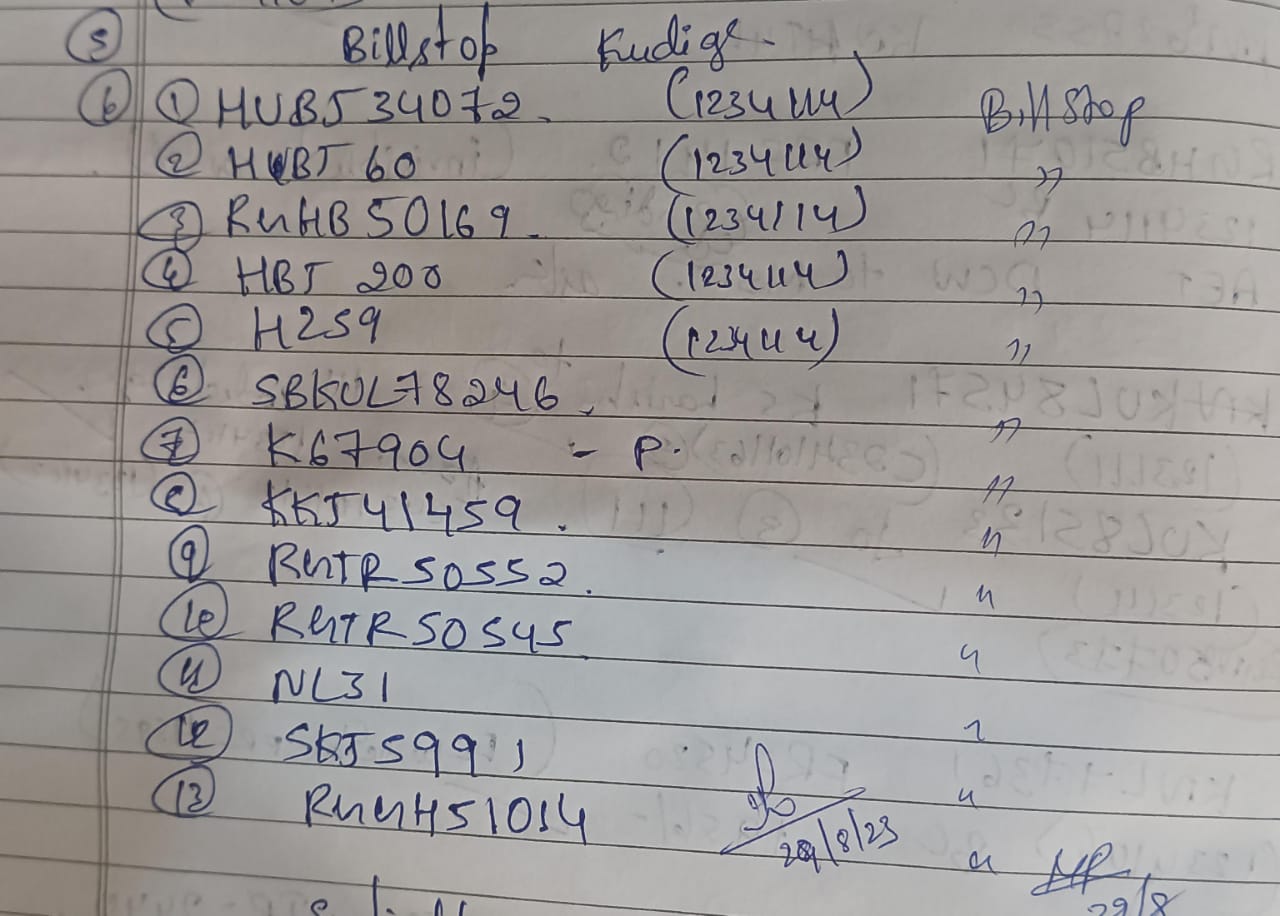 5 Billstop Kudige.
6 1 HUBJ34072. (1234114) Billstop
2 HUBJ 60 (1234114) "
3 RnHB50169 (1234114) "
4 HBJ 200 (1234114) "
5 H259 (1234114) "
6 SBKUL78246. "
7 K67904 - P. "
8 KKJ41459. "
9 RnTR50552. "
10 RnTR50545 "
11 NL31 "
12 SKJ5991 "
13 51014 "
29/8/23
29/8